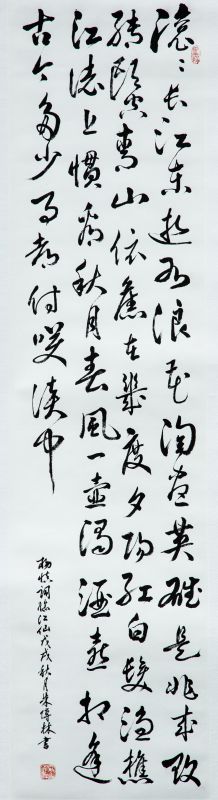 滚〻长江东逝水浪花淘盡英雄是非成败
转頭空青山依舊在幾度夕阳红白髮渔樵
江渚上惯看秋月春風一壶濁酒喜相逢
古今多少事都付笑谈中
杨慎词临江仙戊戌秋月朱林书